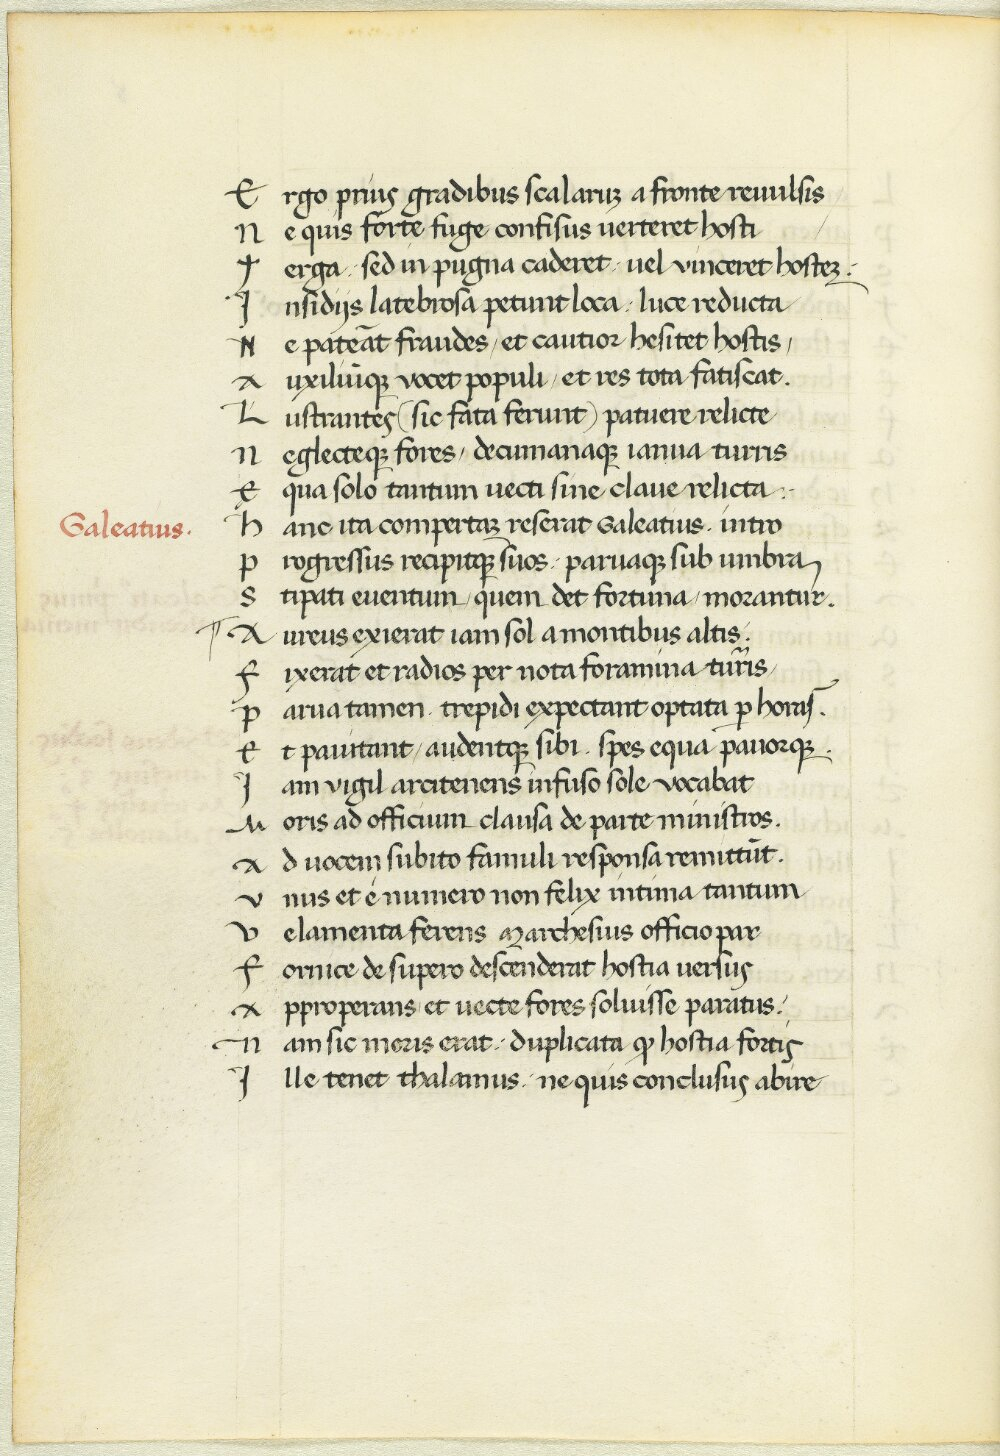 Ergo prius gradibus scalaruꝫ a fronte reuulsis
Ne quis forte fuge confisus uerteret hosti
Terga · sed in pugna caderet · uel vinceret hosteꝫ :
Insidijs latebrosa petunt loca · luce reducta
Ne pateāt fraudes / et cautior hesitet hostis /
Auxiliūqꝫ vocet populi / et res tota fatiscat .
Lustrantes (sic fata ferunt) patuere relicte
Neglecteqꝫ fores / decumanaqꝫ ianua turris
E qua solo tantum uecti sine claue relicta :
Galeatius.
Hanc ita compertaꝫ reserat Galeatius · intro
Progressus recipitqꝫ suos · paruaqꝫ sub umbra
Stipati euentum / quem det fortuna / morantur .
Aureus exierat iam sol a montibus altis :
Fixerat et radios per nota foramina turris /
Parua tamen · trepidi expectant optata ꝑ horas .
Et pauitant / audentqꝫ sibi · spes equa pauorqꝫ .
Iam vigil arcitenens infuso sole vocabat
Moris ad officium clausa de parte ministros .
Ad uocem subito famuli responsa remittūt .
Vnus et é numero non felix intima tantum
Velamenta ferens Marchesius officio par
Fornice de supero descenderat hostia uersus
Approperans et uecte fores soluisse paratus :
Nam sic moris erat · duplicata ꝙ hostia fortis
Ille tenet thalamus · ne quis conclusus abire